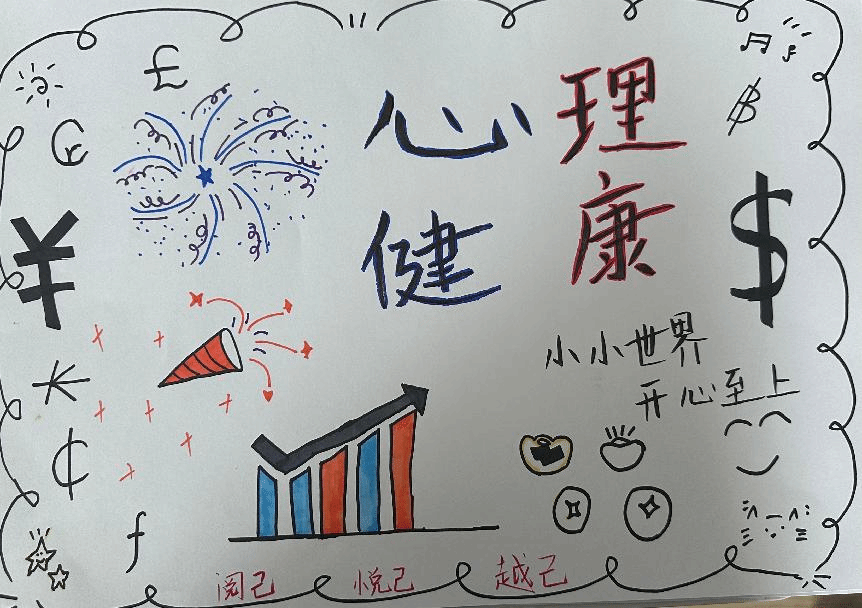 £
心理
健康
¥
$
小小世界
开心至上
¢
f
阅己 悦己 越己